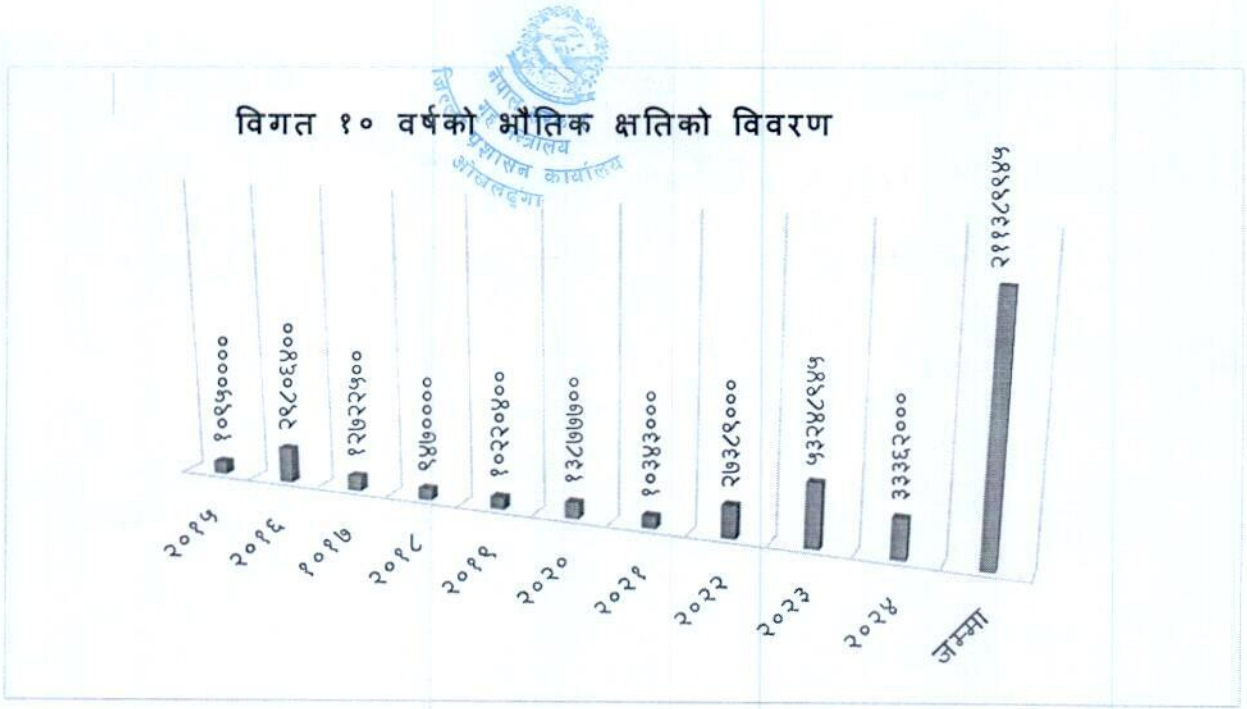 नेपाल
गृह मन्त्रालय
जिल्ला प्रशासन कार्यालय
ओखलढुंगा
विगत १० वर्षको भौतिक क्षतिको विवरण
१०९५००००
२९८०६४००
१२७२२५००
९४७००००
१०२२०४००
१३८७७७००
१०३४३०००
२७३८९०००
५३२४८९४५
३३३६२०००
२११३८९९४५
२०१५
२०१६
१०१७
२०१८
२०१९
२०२०
२०२१
२०२२
२०२३
२०२४
जम्मा